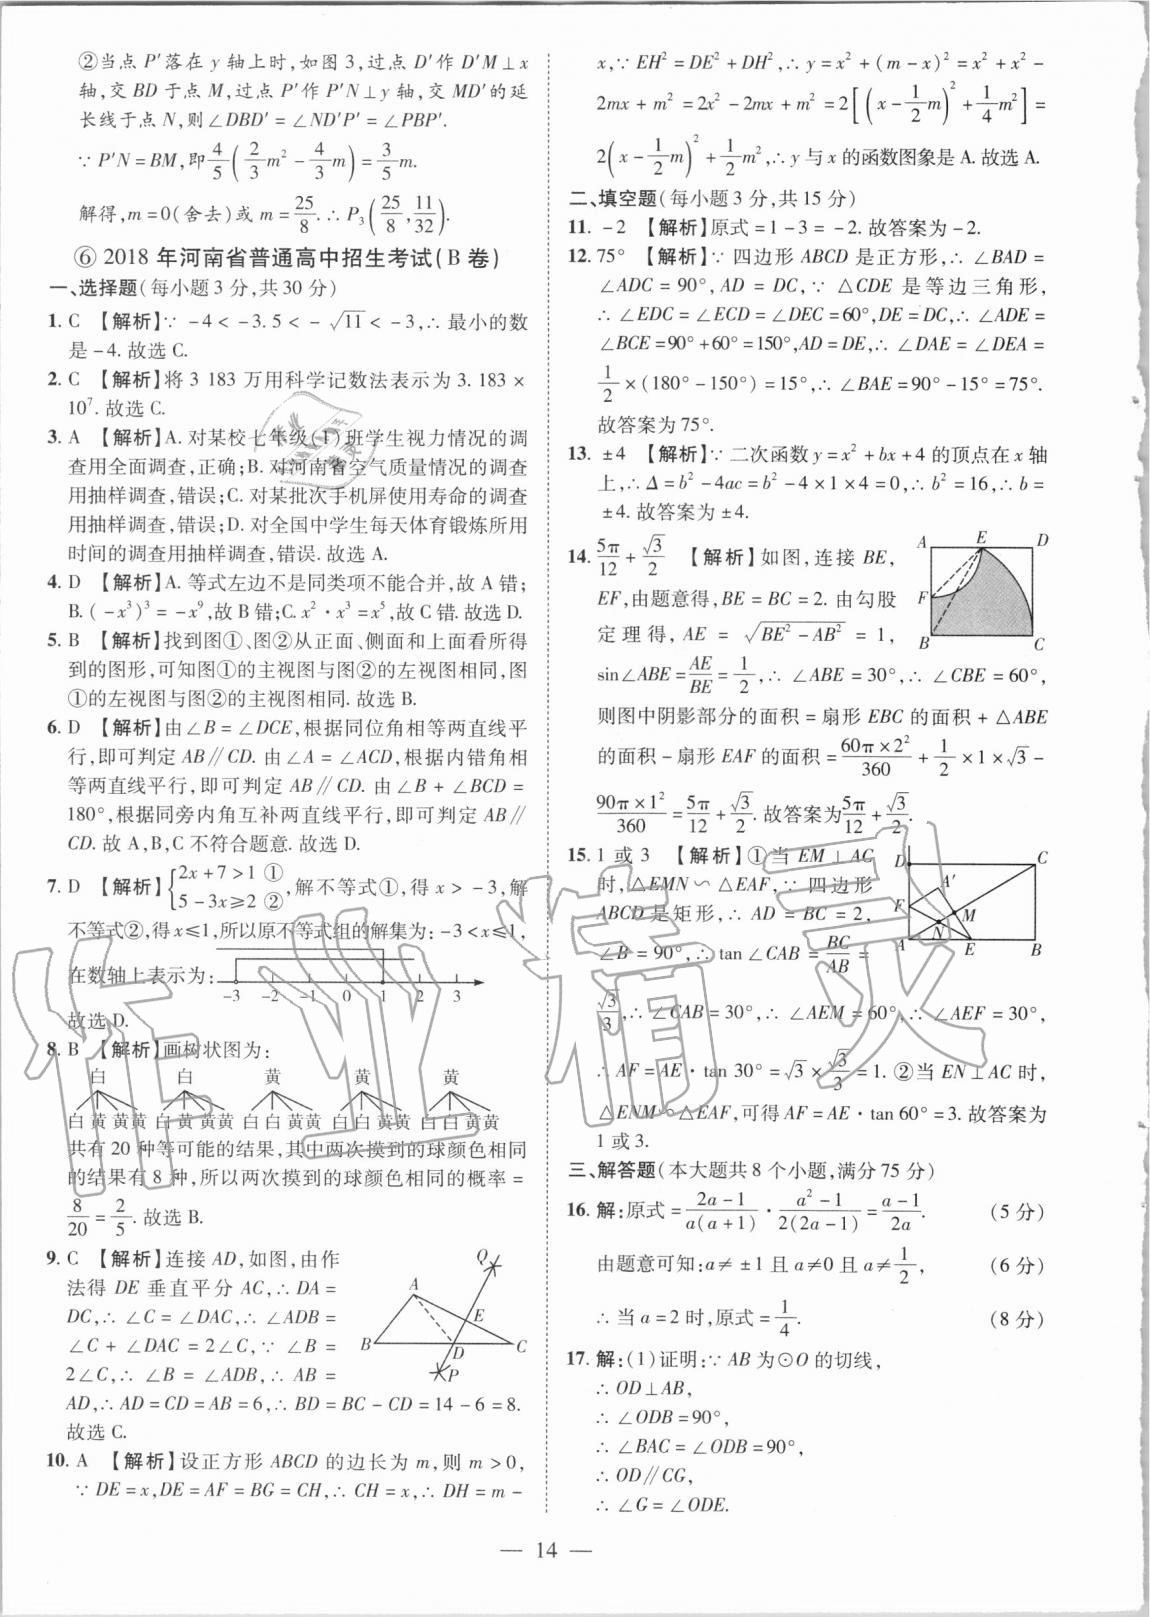 ②当点 P′落在 y 轴上时,如图 3,过点 D′作 D′M⊥x
轴,交 BD 于点 M,过点 P′作 P′N⊥y 轴,交 MD′的延
长线于点 N,则∠DBD′=∠ND′P′=∠PBP′.
∵P′N=BM,即4/5(2/3m²-4/3m)=3/5m.
解得,m=0(舍去)或 m=25/8.∴P₃(25/8,11/32).
⑥ 2018 年河南省普通高中招生考试(B 卷)
一、选择题(每小题 3 分,共 30 分)
1. C 【解析】∵-4<-3.5<-√11<-3,∴最小的数
是-4.故选 C.
2. C 【解析】将 3 183 万用科学记数法表示为 3.183×
10⁷.故选 C.
3. A 【解析】A.对某校七年级(1)班学生视力情况的调
查用全面调查,正确;B.对河南省空气质量情况的调查
用抽样调查,错误;C.对某批次手机屏使用寿命的调查
用抽样调查,错误;D.对全国中学生每天体育锻炼所用
时间的调查用抽样调查,错误.故选 A.
4. D 【解析】A.等式左边不是同类项不能合并,故 A 错;
B.(-x³)³=-x⁹,故 B 错;C.x²·x³=x⁵,故 C 错.故选 D.
5. B 【解析】找到图①、图②从正面、侧面和上面看所得
到的图形,可知图①的主视图与图②的左视图相同,图
①的左视图与图②的主视图相同.故选 B.
6. D 【解析】由∠B=∠DCE,根据同位角相等两直线平
行,即可判定 AB∥CD.由∠A=∠ACD,根据内错角相
等两直线平行,即可判定 AB∥CD.由∠B+∠BCD=
180°,根据同旁内角互补两直线平行,即可判定 AB∥
CD.故 A,B,C 不符合题意.故选 D.
7. D 【解析】{2x+7>1 ① 5-3x≥2 ②,解不等式①,得 x>-3,解
不等式②,得 x≤1,所以原不等式组的解集为:-3<x≤1,
在数轴上表示为: -3 -2 -1 0 1 2 3
故选 D.
8. B 【解析】画树状图为:
白 白 黄 黄 黄
白黄黄黄 白黄黄黄 白白黄黄 白白黄黄 白白黄黄
共有 20 种等可能的结果,其中两次摸到的球颜色相同
的结果有 8 种,所以两次摸到的球颜色相同的概率=
8/20=2/5.故选 B.
9. C 【解析】连接 AD,如图,由作
法得 DE 垂直平分 AC,∴DA=
DC,∴∠C=∠DAC,∴∠ADB=
∠C+∠DAC=2∠C,∵∠B=
2∠C,∴∠B=∠ADB,∴AB=
AD,∴AD=CD=AB=6,∴BD=BC-CD=14-6=8.
故选 C.
Q A E B D C P
10. A 【解析】设正方形 ABCD 的边长为 m,则 m>0,
∵DE=x,DE=AF=BG=CH,∴CH=x,∴DH=m-
x,∵EH²=DE²+DH²,∴y=x²+(m-x)²=x²+x²-
2mx+m²=2x²-2mx+m²=2[(x-1/2m)²+1/4m²]=
2(x-1/2m)²+1/2m²,∴y 与 x 的函数图象是 A.故选 A.
二、填空题(每小题 3 分,共 15 分)
11. -2 【解析】原式=1-3=-2.故答案为-2.
12. 75° 【解析】∵四边形 ABCD 是正方形,∴∠BAD=
∠ADC=90°,AD=DC,∵△CDE 是等边三角形,
∴∠EDC=∠ECD=∠DEC=60°,DE=DC,∴∠ADE=
∠BCE=90°+60°=150°,AD=DE,∴∠DAE=∠DEA=
1/2×(180°-150°)=15°,∴∠BAE=90°-15°=75°.
故答案为 75°.
13. ±4 【解析】∵二次函数 y=x²+bx+4 的顶点在 x 轴
上,∴Δ=b²-4ac=b²-4×1×4=0,∴b²=16,∴b=
±4.故答案为±4.
14. 5π/12+√3/2 【解析】如图,连接 BE,
EF,由题意得,BE=BC=2.由勾股
定理得,AE=√(BE²-AB²)=1,
sin∠ABE=AE/BE=1/2,∴∠ABE=30°,∴∠CBE=60°,
则图中阴影部分的面积=扇形 EBC 的面积+△ABE
的面积-扇形 EAF 的面积=60π×2²/360+1/2×1×√3-
90π×1²/360=5π/12+√3/2.故答案为5π/12+√3/2.
A E D F B C
15. 1 或 3 【解析】①当 EM⊥AC
时,△EMN∽△EAF,∵四边形
ABCD 是矩形,∴AD=BC=2,
∠B=90°,∴tan∠CAB=BC/AB=
√3/3,∴∠CAB=30°,∴∠AEM=60°,∴∠AEF=30°,
∴AF=AE·tan 30°=√3×√3/3=1.②当 EN⊥AC 时,
△ENM∽△EAF,可得 AF=AE·tan60°=3.故答案为
1 或 3.
D C A′ F M N A E B
三、解答题(本大题共 8 个小题,满分 75 分)
16. 解:原式=2a-1/a(a+1)·a²-1/2(2a-1)=a-1/2a. (5 分)
由题意可知:a≠±1 且 a≠0 且 a≠1/2, (6 分)
∴当 a=2 时,原式=1/4. (8 分)
17. 解:(1)证明:∵AB 为⊙O 的切线,
∴OD⊥AB,
∴∠ODB=90°,
∴∠BAC=∠ODB=90°,
∴OD∥CG,
∴∠G=∠ODE.
— 14 —
作业精灵